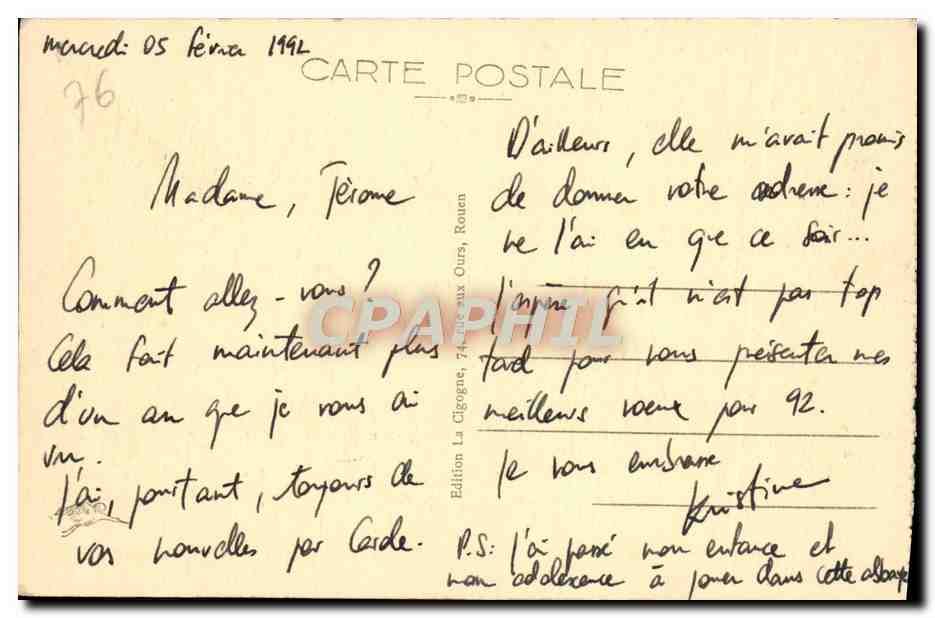 mercredi 05 février 1992
CARTE POSTALE
76
Madame, Jérome
Comment allez-vous ?
Cela fait maintenant plus
d'un an que je vous ai
vu.
J'ai, pourtant, toujours de
vos nouvelles par Carole.
Edition La Cigogne, 74, rue aux Ours, Rouen
D'ailleurs, elle m'avait promis
de donner votre adresse : je
ne l'ai eu que ce soir...
J'espère qu'il n'est pas top
tard pour vous présenter mes
meilleurs voeux pour 92.
Je vous embrasse
Kristine
P.S: J'ai passé mon enfance et
mon adolescence à jouer dans cette abbaye
CPAPHIL